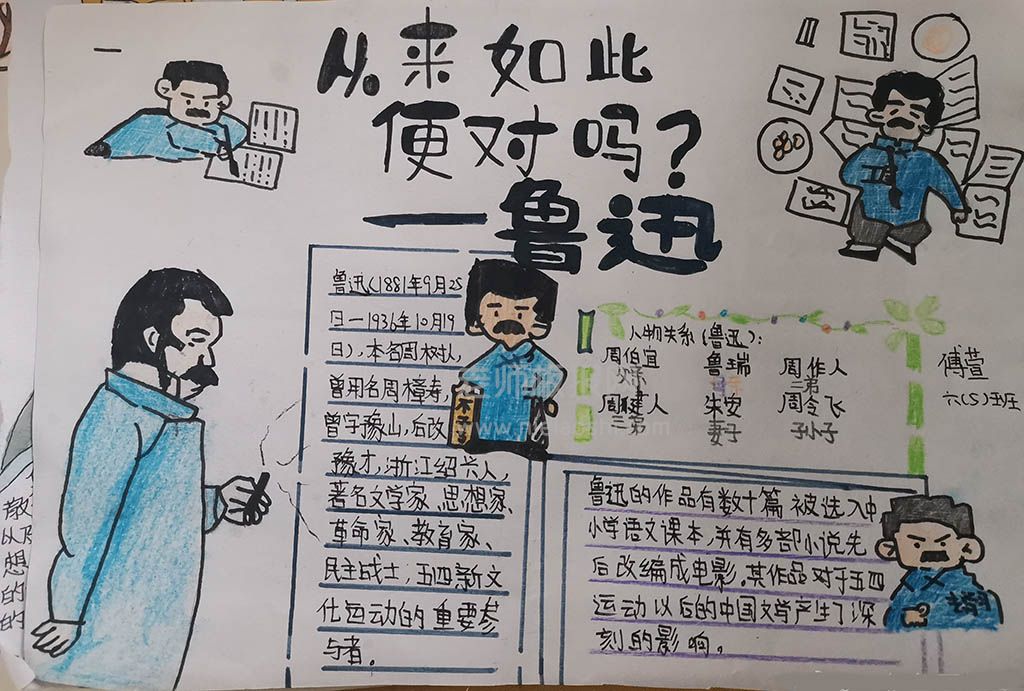 从来如此
便对吗?
—鲁迅
鲁迅(1881年9月25
日—1936年10月19
日),本名周树人,
曾用名周樟寿,
曾字豫山,后改
豫才,浙江绍兴人,
著名文学家、思想家、
革命家、教育家、
民主战士;五四新文
化运动的重要参
与者。
人物关系(鲁迅):
周伯宜 鲁瑞 周作人
父亲 母亲 二弟
周建人 朱安 周令飞
三弟 妻子 孙子
傅萱
六(5)班
鲁迅的作品有数十篇被选入中
小学语文课本,并有多部小说先
后改编成电影。其作品对于五四
运动以后的中国文学产生了深
刻的影响。
以及
想
的
的